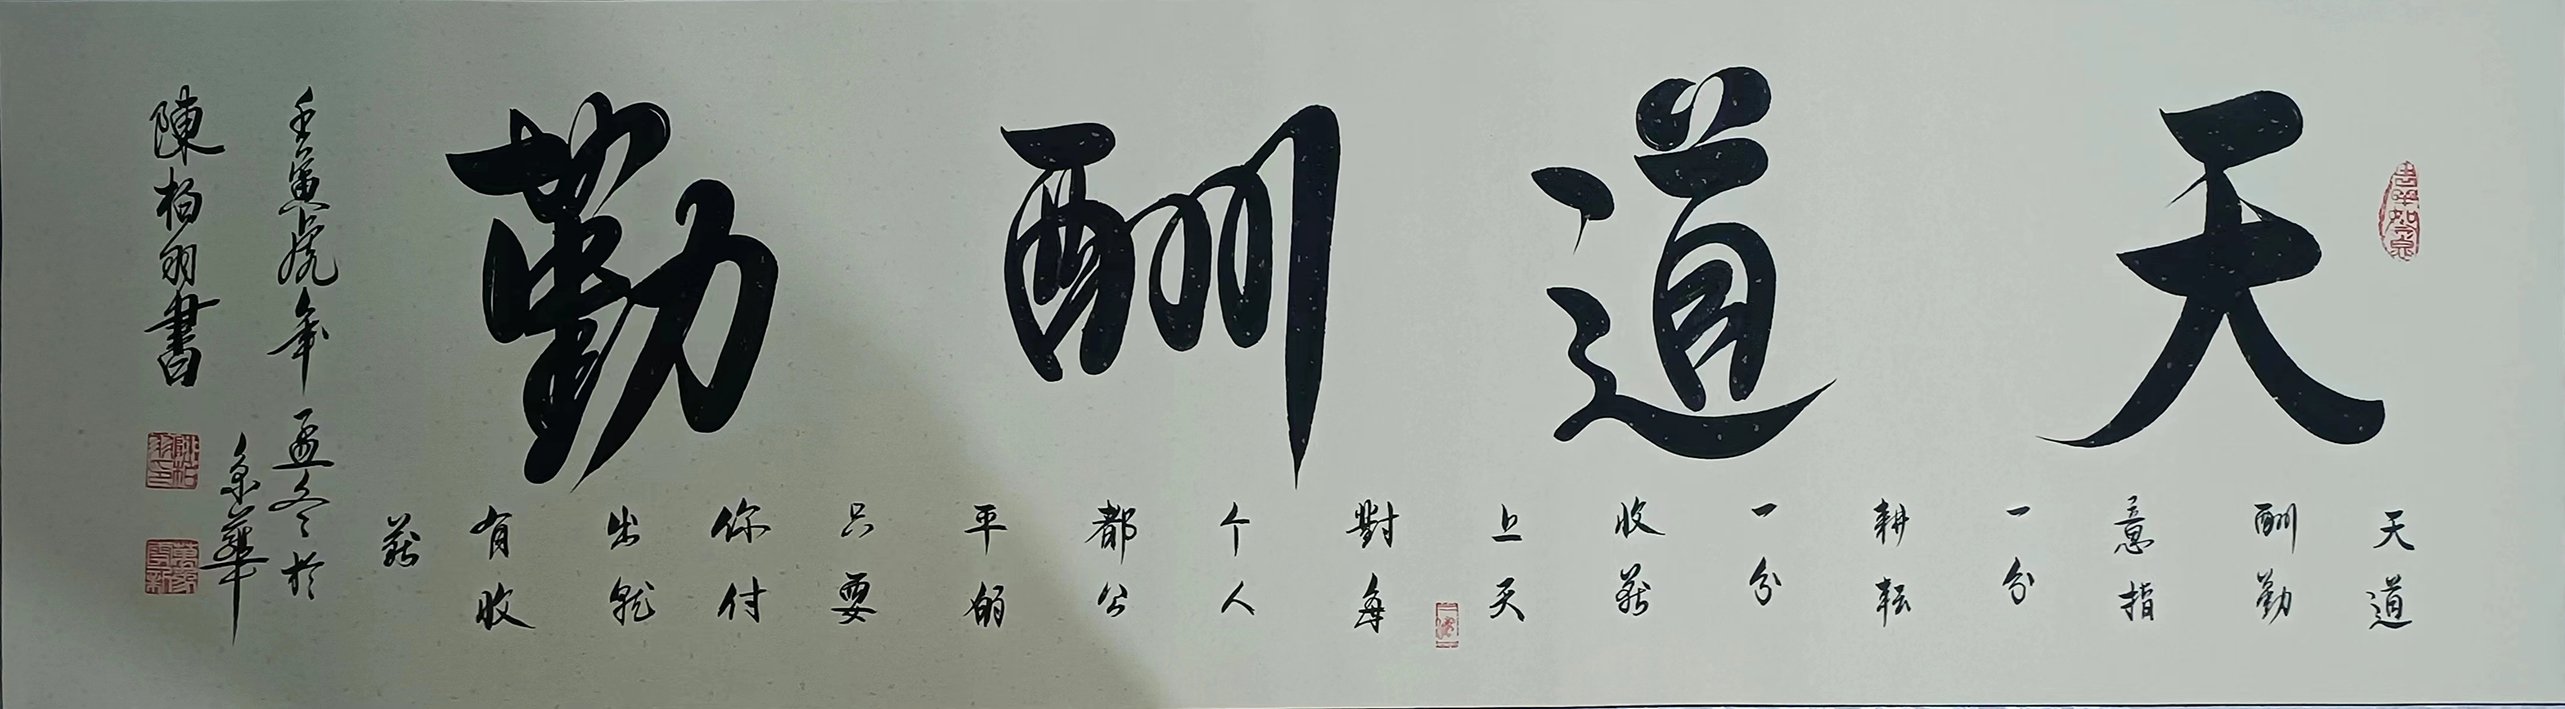 天道酬勤
天道
酬勤
意指
一分
耕耘
一分
收获
上天
對每
个人
都公
平的
只要
你付
出就
有收
获
壬寅虎年孟冬於
京華
陳柏羽書